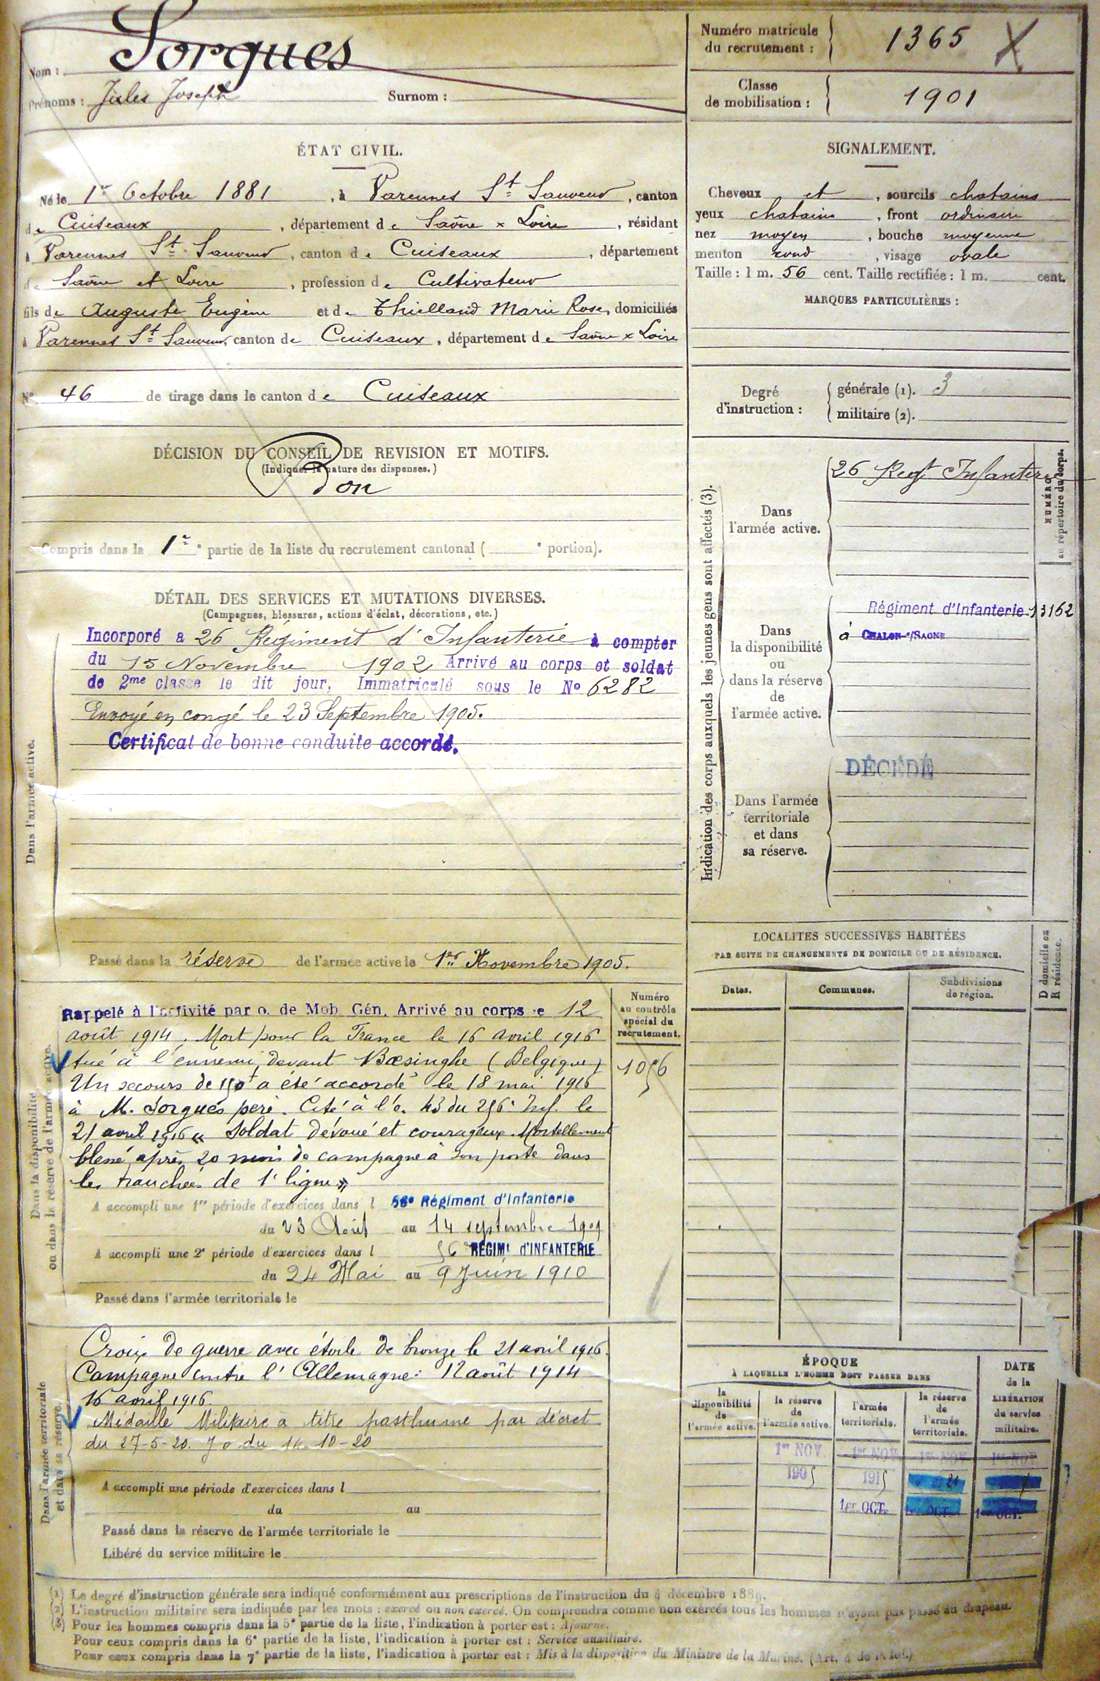 Nom : Sorgues
Prénoms : Jules Joseph Surnom :
Numéro matricule du recrutement : 1365 X
Classe de mobilisation : 1901
ÉTAT CIVIL.
Né le 1er Octobre 1881, à Varennes St Sauveur, canton
de Cuiseaux, département de Saône & Loire, résidant
à Varennes St Sauveur, canton de Cuiseaux, département
de Saône et Loire, profession de Cultivateur
fils de Auguste Eugène et de Thielland Marie Rose, domiciliés
à Varennes St Sauveur, canton de Cuiseaux, département de Saône & Loire
No 46 de tirage dans le canton de Cuiseaux
SIGNALEMENT.
Cheveux et, sourcils chatains
yeux chatains, front ordinaire
nez moyen, bouche moyenne
menton rond, visage ovale
Taille : 1 m. 56 cent. Taille rectifiée : 1 m. cent.
MARQUES PARTICULIÈRES :
Degré d'instruction :
générale (1). 3
militaire (2).
DÉCISION DU CONSEIL DE REVISION ET MOTIFS.
(Indiquer la nature des dispenses.)
Bon
Compris dans la 1re partie de la liste du recrutement cantonal ( e portion).
DÉTAIL DES SERVICES ET MUTATIONS DIVERSES.
(Campagnes, blessures, actions d'éclat, décorations, etc.)
Dans l'armée active.
Incorporé a 26 Régiment d'Infanterie à compter
du 15 Novembre 1902 Arrivé au corps et soldat
de 2me classe le dit jour, Immatriculé sous le No 6282
Envoyé en congé le 23 Septembre 1905.
Certificat de bonne conduite accordé.
Passé dans la réserve de l'armée active le 1er Novembre 1905.
Indication des corps auxquels les jeunes gens sont affectés (3).
NUMÉRO au répertoire du corps.
Dans l'armée active.
26 Regt Infanterie
Dans la disponibilité ou dans la réserve de l'armée active.
Régiment d'Infanterie 13162
à CHALON-s/SAONE
Dans l'armée territoriale et dans sa réserve.
DÉCÉDÉ
LOCALITÉS SUCCESSIVES HABITÉES
PAR SUITE DE CHANGEMENTS DE DOMICILE OU DE RÉSIDENCE.
Dates. Communes. Subdivisions de région.
D domicile ou R résidence.
Dans la disponibilité ou dans la réserve de l'armée active.
Numéro au contrôle spécial du recrutement.
1056
Rappelé à l'activité par o. de Mob. Gén. Arrivé au corps le 12
août 1914. Mort pour la France le 16 avril 1916
tué à l'ennemi devant Bœsinghe (Belgique)
Un secours de 150f a été accordé le 18 mai 1916
à M. Sorgues père. Cité à l'o. 43 du 256e Inf. le
21 avril 1916 « Soldat dévoué et courageux. Mortellement
blessé, après 20 mois de campagne à son poste dans
les tranchées de 1e ligne »
A accompli une 1re période d'exercices dans l 56e Régiment d'Infanterie
du 23 Août au 14 septembre 1909
A accompli une 2e période d'exercices dans l 56e RÉGIMt D'INFANTERIE
du 24 Mai au 9 Juin 1910
Passé dans l'armée territoriale le
Dans l'armée territoriale et dans sa réserve.
Croix de guerre avec étoile de bronze le 21 avril 1916.
Campagne contre l'Allemagne : 12 août 1914
16 avril 1916
Médaille Militaire a titre posthume par décret
du 27-5-20. Jo du 14-10-20
A accompli une période d'exercices dans l
du au
Passé dans la réserve de l'armée territoriale le
Libéré du service militaire le
ÉPOQUE
À LAQUELLE L'HOMME DOIT PASSER DANS
DATE de la LIBÉRATION du service militaire.
la disponibilité de l'armée active.
la réserve de l'armée active.
l'armée territoriale.
la réserve de l'armée territoriale.
1er NOV. 1er NOV. 1er NOV. 1er NOV.
1905 1915
1er OCT. 1er OCT. 1er OCT.
(1) Le degré d'instruction générale sera indiqué conformément aux prescriptions de l'instruction du 4 décembre 1889.
(2) L'instruction militaire sera indiquée par les mots : exercé ou non exercé. On comprendra comme non exercés tous les hommes n'ayant pas passé au drapeau.
(3) Pour les hommes compris dans la 5e partie de la liste, l'indication à porter est : Ajourné.
Pour ceux compris dans la 6e partie de la liste, l'indication à porter est : Service auxiliaire.
Pour ceux compris dans la 7e partie de la liste, l'indication à porter est : Mis à la disposition du Ministre de la Marine. (Art. 4 de la loi.)